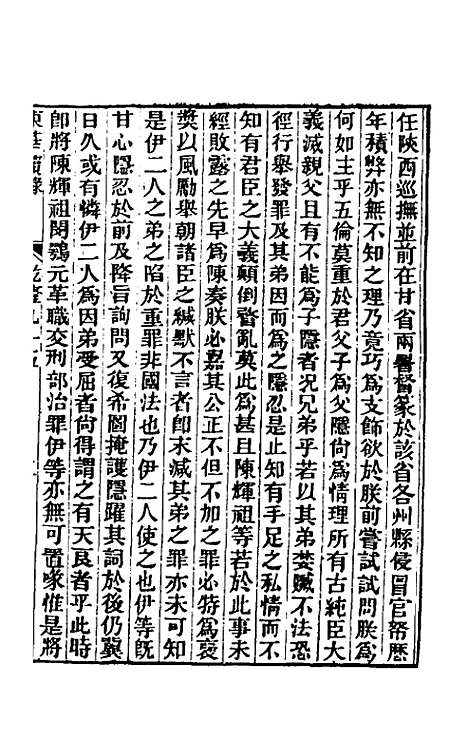 任陝西巡撫並前在甘省兩署督篆於該省各州縣侵冒官帑歷
年積弊亦無不知之理乃竟巧爲支飾欲於朕前嘗試試問朕爲
何如主乎五倫莫重於君父子爲父隱尙爲情理所有古純臣大
義滅親父且有不能爲子隱者况兄弟乎若以其弟婪贓不法恐
徑行舉發罪及其弟因而爲之隱忍是止知有手足之私情而不
知有君臣之大義顚倒瞀亂莫此爲甚且陳輝祖等若於此事未
經敗露之先早爲陳奏朕必嘉其公正不但不加之罪必特爲褒
奬以風勵舉朝諸臣之緘默不言者卽末減其弟之罪亦未可知
是伊二人之弟之陷於重罪非國法也乃伊二人使之也伊等旣
甘心隱忍於前及降旨詢問又復希圖掩護隱躍其詞於後仍冀
日久或有憐伊二人爲因弟受屈者尙得謂之有天良者乎此時
卽將陳輝祖閔鶚元革職交刑部治罪伊等亦無可置喙惟是將
東華續錄 乾隆九十五